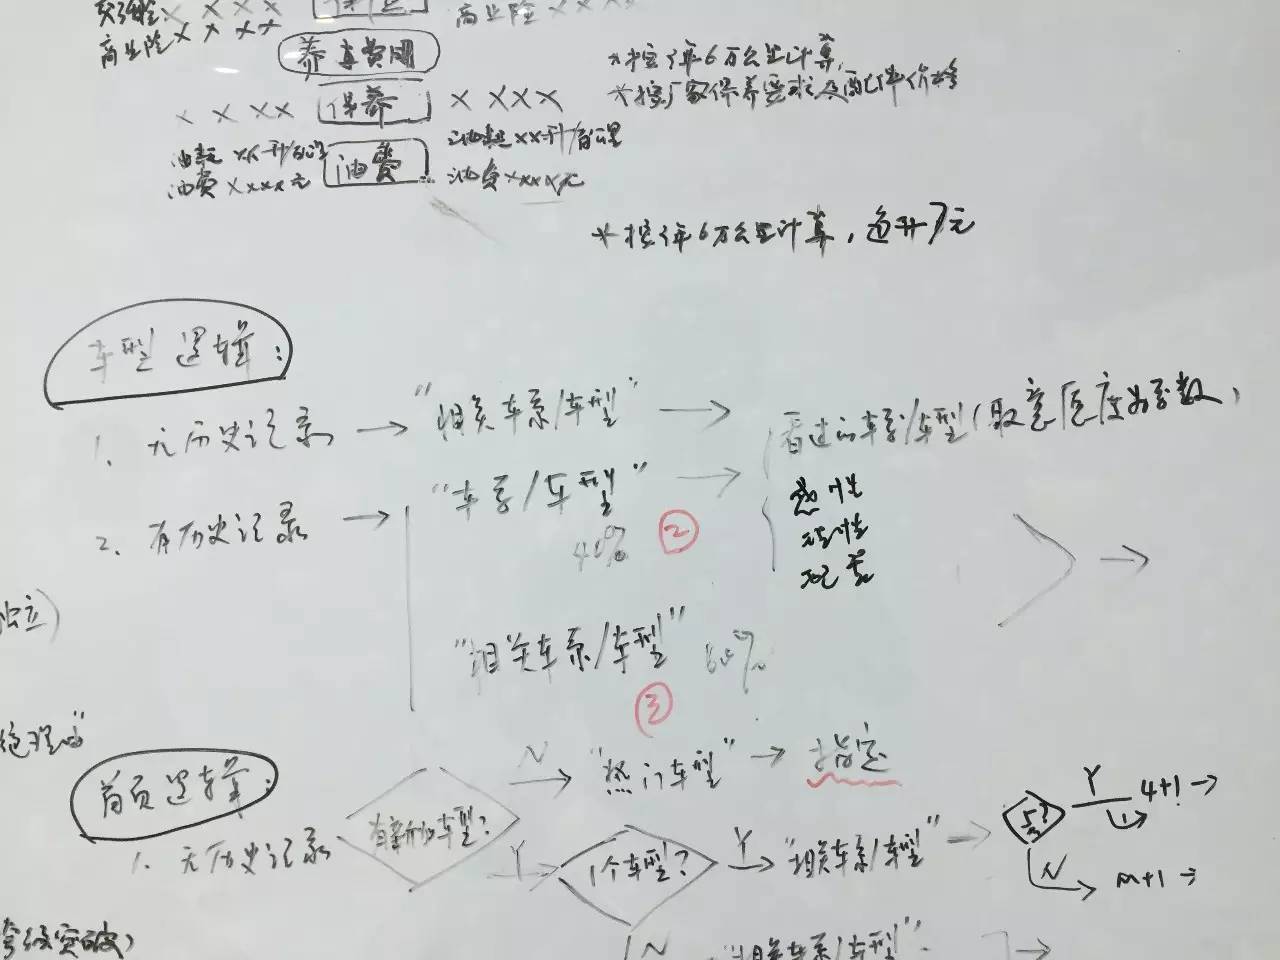 商业险 x x x x
商业险 x x x x
养车费用
*按年6万公里计算,
x x x x 保养 x x x x
*按厂家保养要求及配件价格
油耗 xx升/百公里 油费 油耗 xx升/百公里
油费 xxxx元 油费 xxxx元
*按年6万公里计算, 每升7元
车型逻辑:
1. 无历史记录 → "相关车系/车型" → 看过的车系/车型(取
2. 有历史记录 → "车系/车型" →
40% ②
感性
配置
独立)
"相关车系/车型" 60%
③
首页逻辑:
N "热门车型" → 指定
1. 无历史记录 车型? Y 1个车型? Y "相关车系/车型" → 5? Y 4+1 →
N m+1 →
N "相关车系/车型" →
突破)